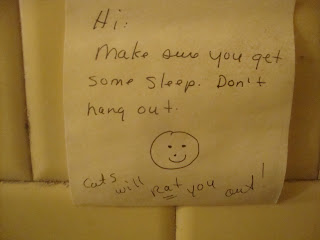 Hi:
Make sure you get
some sleep. Don't
hang out.
Cats will rat you out!